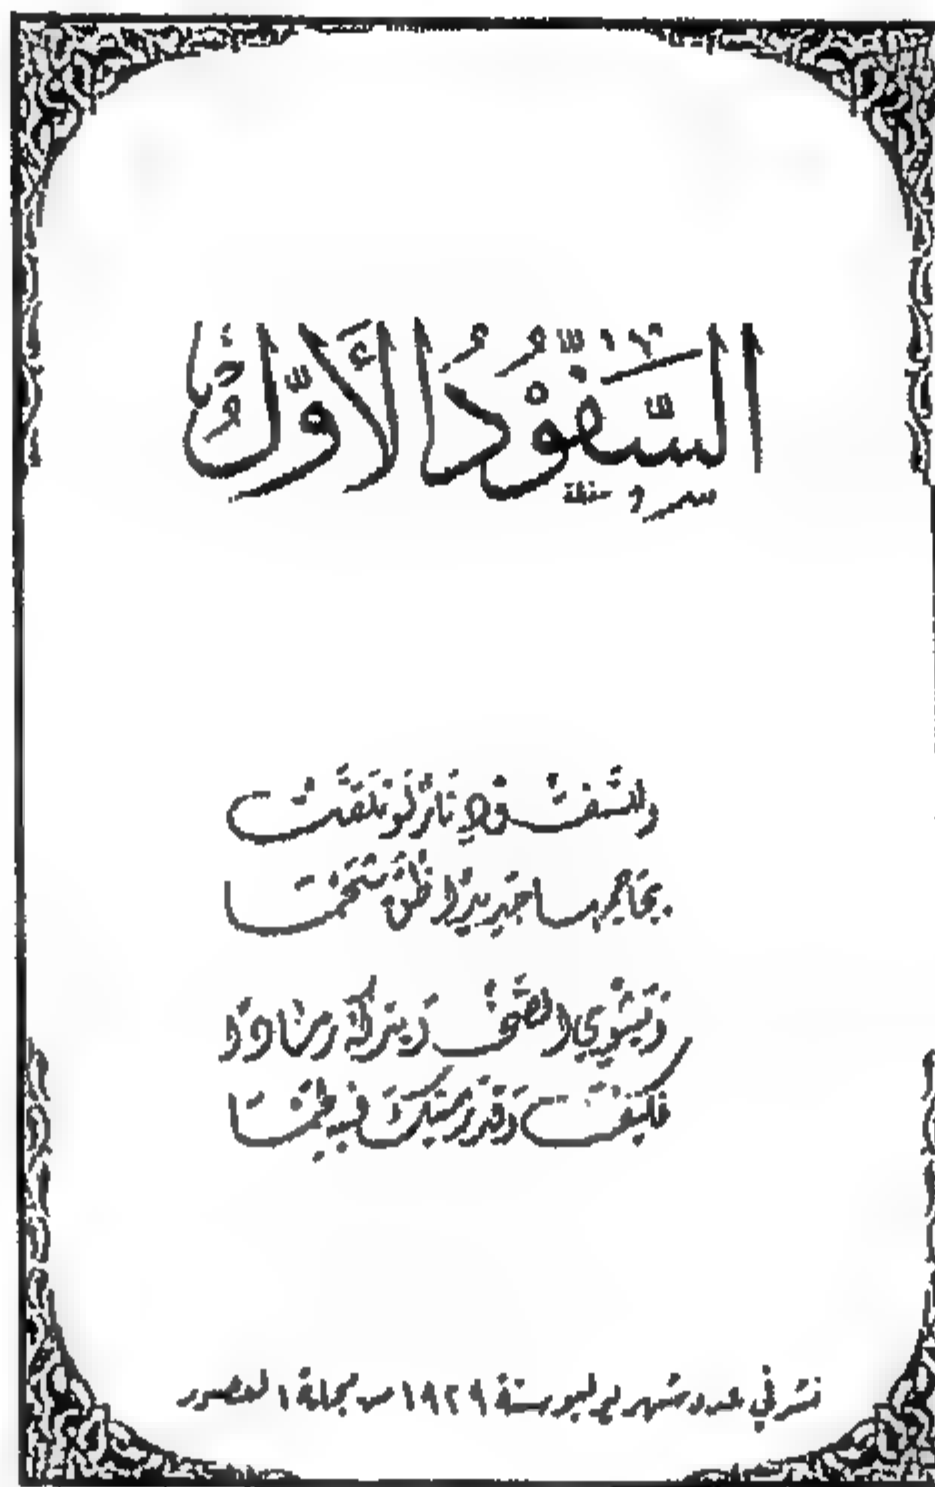 السَّفُّودُ الأَوَّلُ
وللسَّفُّودِ نَارٌ لَو تَلَقَّتْ
بجَاحِمِهَا حَدِيدًا ظُنَّ شَحْمَا
وَيَشْوِي الصَّخْرَ يَتْرُكُهُ رَمَادًا
فَكَيْفَ وَقَدْ رَمَيْتُكَ فِيهِ لَحْمَا
نشر في عدد شهر يوليو سنة ١٩٢٩ من مجلة العصور